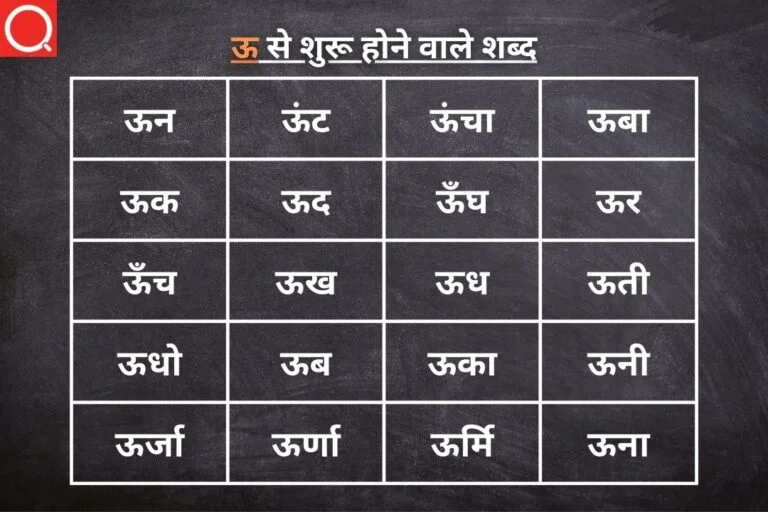 ऊ से शुरू होने वाले शब्द
ऊन ऊंट ऊंचा ऊबा
ऊक ऊद ऊँघ ऊर
ऊँच ऊख ऊध ऊती
ऊधो ऊब ऊका ऊनी
ऊर्जा ऊर्णा ऊर्मि ऊना